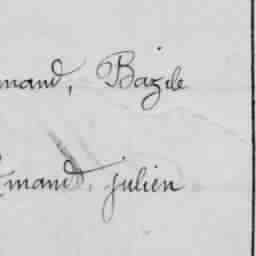 mand, Bazile
mand, julien